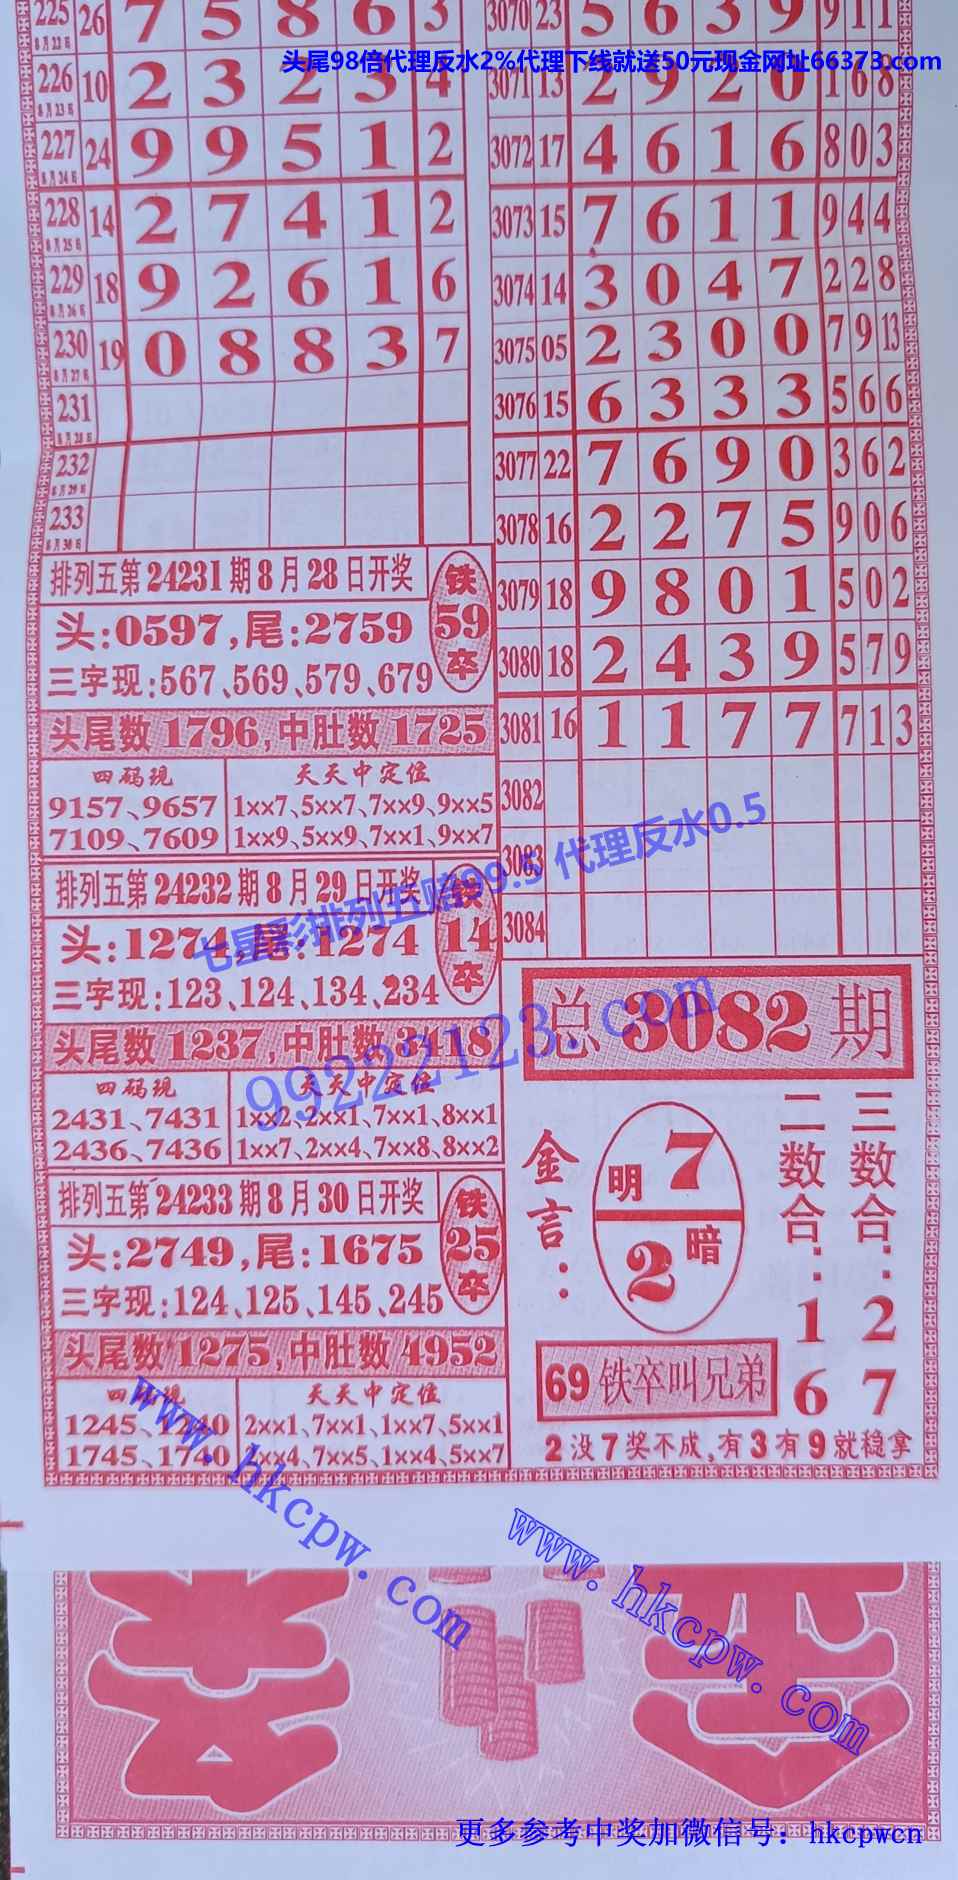 头尾98倍代理反水2%代理下线就送50元现金网址66373.com
225 8月22日 26 7 5 8 6 3
226 8月23日 10 2 3 2 3 4
227 8月24日 24 9 9 5 1 2
228 8月25日 14 2 7 4 1 2
229 8月26日 18 9 2 6 1 6
230 8月27日 19 0 8 8 3 7
231 8月28日
232 8月29日
233 8月30日
排列五第24231期8月28日开奖
头:0597,尾:2759
三字现:567、569、579、679
铁
59
卒
头尾数1796,中肚数1725
四码现
9157、9657
7109、7609
天天中定位
1××7、5××7、7××9、9××5
1××9、5××9、7××1、9××7
排列五第24232期8月29日开奖
头:1274,尾:1274
三字现:123、124、134、234
铁
14
卒
头尾数1237,中肚数3418
四码现
2431、7431
2436、7436
天天中定位
1××2、2××1、7××1、8××1
1××7、2××4、7××8、8××2
排列五第24233期8月30日开奖
头:2749,尾:1675
三字现:124、125、145、245
铁
25
卒
头尾数1275,中肚数4952
四码现
1245、1240
1745、1740
天天中定位
2××1、7××1、1××7、5××1
2××4、7××5、1××4、5××7
3070 23 5 6 3 9 9 1 1
3071 13 2 9 2 0 1 6 8
3072 17 4 6 1 6 8 0 3
3073 15 7 6 1 1 9 4 4
3074 14 3 0 4 7 2 2 8
3075 05 2 3 0 0 7 9 13
3076 15 6 3 3 3 5 6 6
3077 22 7 6 9 0 3 6 2
3078 16 2 2 7 5 9 0 6
3079 18 9 8 0 1 5 0 2
3080 18 2 4 3 9 5 7 9
3081 16 1 1 7 7 7 1 3
3082
3083
3084
总3082期
金言:
明 7
2 暗
二数合:16
三数合:27
69铁卒叫兄弟
2没7奖不成,有3有9就稳拿
七星彩排列五赔99.5 代理反水0.5
99222123.com
www.hkcpw.com
www.hkcpw.com
更多参考中奖加微信号: hkcpwcn